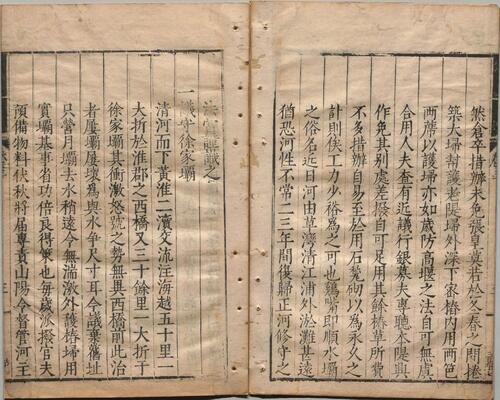 然倉卒措辦未免張皇莫若於冬春之間捲
築大埽幇護老堤埽外深下家樁内用兩笆
兩蓆以護埽亦如歲防高堰之法自可無虞
合用人夫查有近議行銀募夫專聽本堤興
作免其别處差撥自可足用其餘樁草所費
不多措辦自易至於用石甃砌以為永久之
計則俟工力少裕為之可也鷄嘴即順水壩
之俗名近日河由草灣清江浦外淤灘甚遠
猶恐河性不常二三年間復歸正河修守之
一議守徐家壩
清河而下黄淮二瀆交流注海越五十里一
大折於淮郡之西橋又三十餘里一大折于
徐家壩其衝激怒號之勢無異西橋前此治
者屢壩屢壊為與水爭尺寸耳今議棄舊址
只營月壩去水稍遠令無湍激外護樁埽用
實壩基事省功倍良得策也每歲派撥官夫
預備物料伏秋將届專責山陽令督管河王